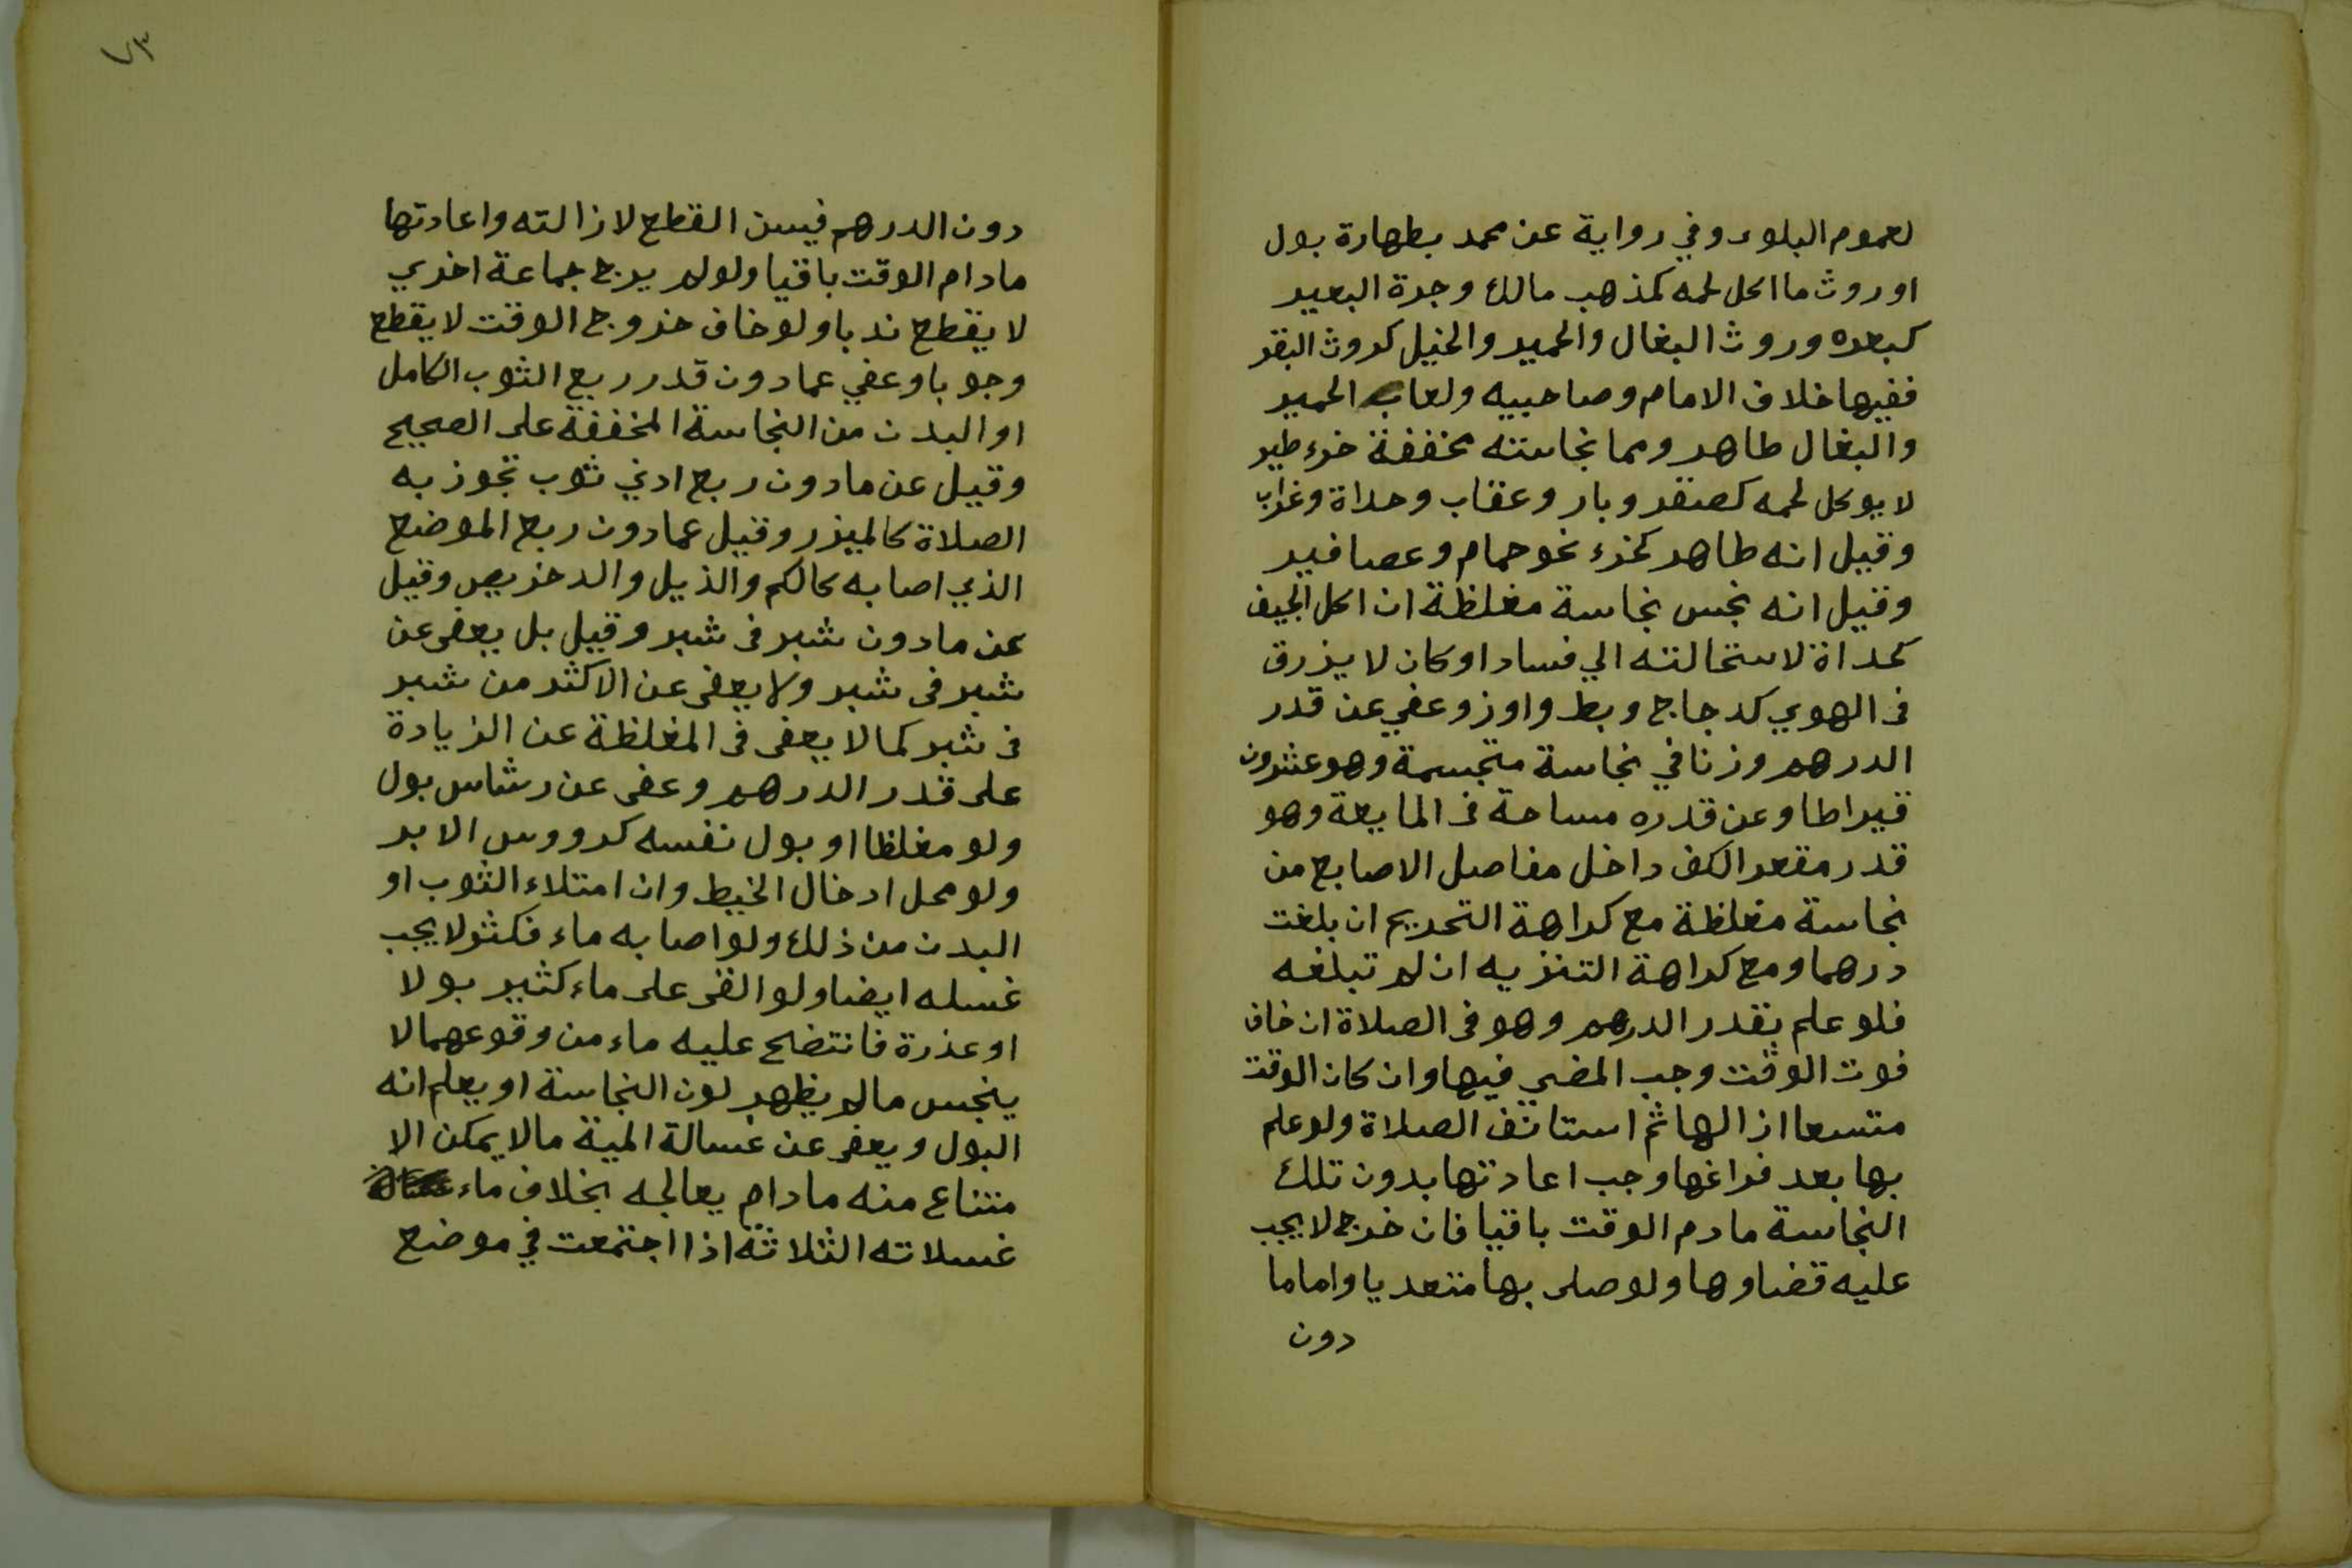 لعموم البلوى وفي رواية عن محمد بطهارة بول
او روث ما اكل لحمه كمذهب مالك وجرة البعير
كبعره وروث البغال والحمير والخيل كروث البقر
ففيها خلاف الامام وصاحبيه ولعاب الحمير
والبغال طاهر ومما نجاسته مخففة خرء طير
لا يوكل لحمه كصقر وباز وعقاب وحداة وغراب
وقيل انه طاهر كخرء نحو حمام وعصافير
وقيل انه نجس نجاسة مغلظة ان اكل الجيف
كحداة لاستحالته الي فساد او كان لا يزرق
فى الهوي كدجاج وبط واوز وعفي عن قدر
الدرهم وزنا في نجاسة متجسمة وهو عشرون
قيراطا وعن قدره مساحة فى المايعة وهو
قدر مقعر الكف داخل مفاصل الاصابع من
نجاسة مغلظة مع كراهة التحريم ان بلغت
درهما ومع كراهة التنزيه ان لم تبلغه
فلو علم بقدر الدرهم وهو فى الصلاة ان خاف
فوت الوقت وجب المضي فيها وان كان الوقت
متسعا ازالها ثم استانف الصلاة ولو علم
بها بعد فراغها وجب اعادتها بدون تلك
النجاسة مادم الوقت باقيا فان خرج لا يجب
عليه قضاوها ولو صلى بها متعديا واماما
دون
٧٣
دون الدرهم فيسن القطع لازالته واعادتها
مادام الوقت باقيا ولو لم يرج جماعة اخري
لا يقطع ندبا ولو خاف خروج الوقت لا يقطع
وجوبا وعفي عما دون قدر ربع الثوب الكامل
او البدن من النجاسة المخففة على الصحيح
وقيل عن مادون ربع ادني ثوب تجوز به
الصلاة كالميزر وقيل عما دون ربع الموضع
الذي اصابه كالكم والذيل والدخريص وقيل
عن مادون شبر فى شبر وقيل بل يعفى عن
شبر فى شبر ولا يعفى عن الاكثر من شبر
فى شبر كما لا يعفى فى المغلظة عن الزيادة
على قدر الدرهم وعفى عن رشاس بول
ولو مغلظا او بول نفسه كرووس الابر
ولو محل ادخال الخيط وان امتلاء الثوب او
البدن من ذلك ولو اصابه ماء فكثر لا يجب
غسله ايضا ولو القى على ماء كثير بولا
او عذرة فانتضح عليه ماء من وقوعهما لا
ينجس مالم يظهر لون النجاسة او يعلم انه
البول ويعفى عن غسالة الميتة مالا يمكن الا
متناع منه مادام يعالجه بخلاف ماء
غسلاته الثلاثة اذا اجتمعت في موضع